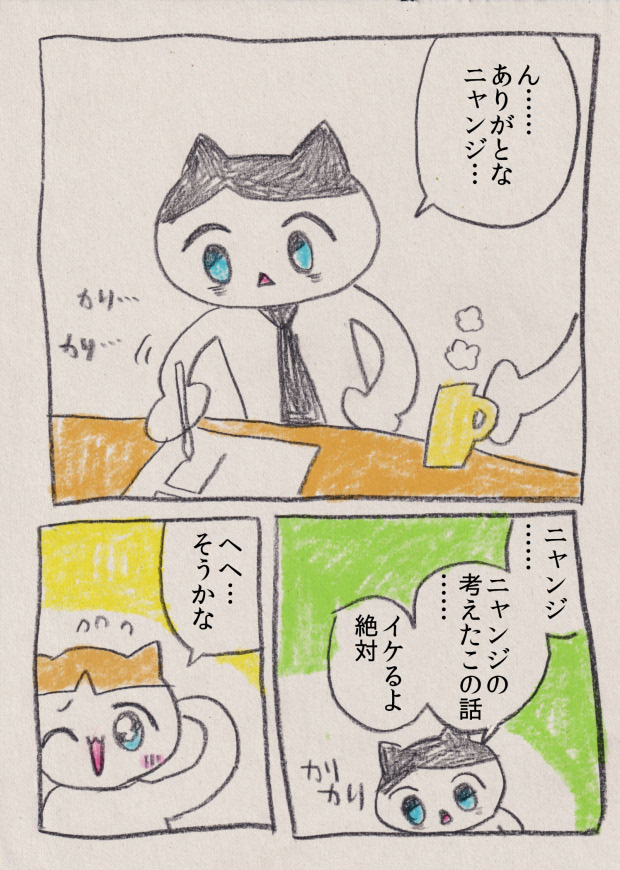 ん……
ありがとな
ニャンジ…
カリ…
カリ…
ニャンジ
……
ニャンジの
考えたこの話
……
イケるよ
絶対
カリ
カリ
へへ…
そうかな